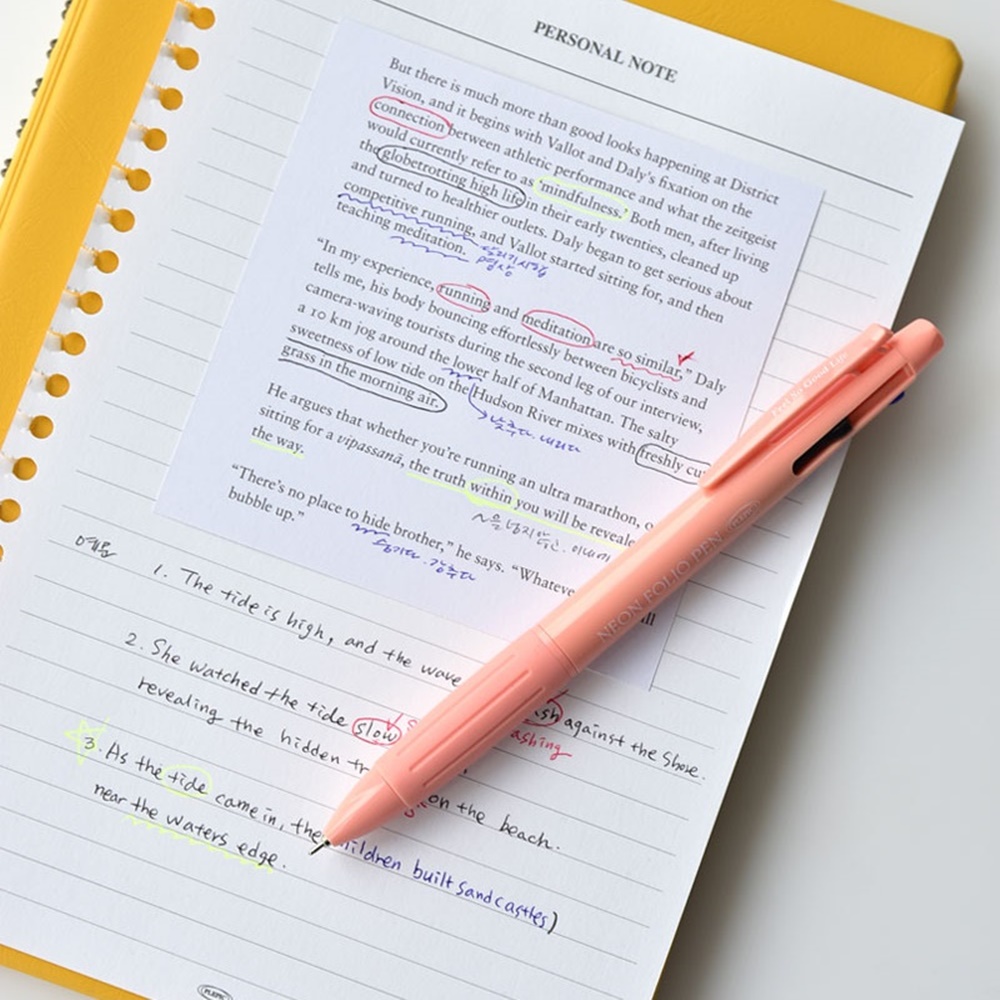 PERSONAL NOTE
But there is much more than good looks happening at District
Vision, and it begins with Vallot and Daly's fixation on the
connection between athletic performance and what the zeitgeist
would currently refer to as 'mindfulness.' Both men, after living
the globetrotting high life in their early twenties, cleaned up
and turned to healthier outlets. Daly began to get serious about
competitive running, and Vallot started sitting for, and then
teaching meditation.
달리기시합
명상
"In my experience, running and meditation are so similar," Daly
tells me, his body bouncing effortlessly between bicyclists and
camera-waving tourists during the second leg of our interview,
a 10 km jog around the lower half of Manhattan. The salty
sweetness of low tide on the Hudson River mixes with freshly cu
grass in the morning air.
낮추다. 내리다
He argues that whether you're running an ultra marathon, o
sitting for a vipassanā, the truth within you will be reveale
the way.
~을 넘지않
"There's no place to hide brother," he says. "Whateve
ill
bubble up."
숨기다. 감추다
예문
1. The tide is high, and the wave
sh against the shore.
ashing
2. She watched the tide slow
revealing the hidden tr
on the beach.
3. As the tide came in, the
ildren built sandcastles)
near the waters edge.
Feel So Good Life
NEON FOLIO PEN
PLEPIC